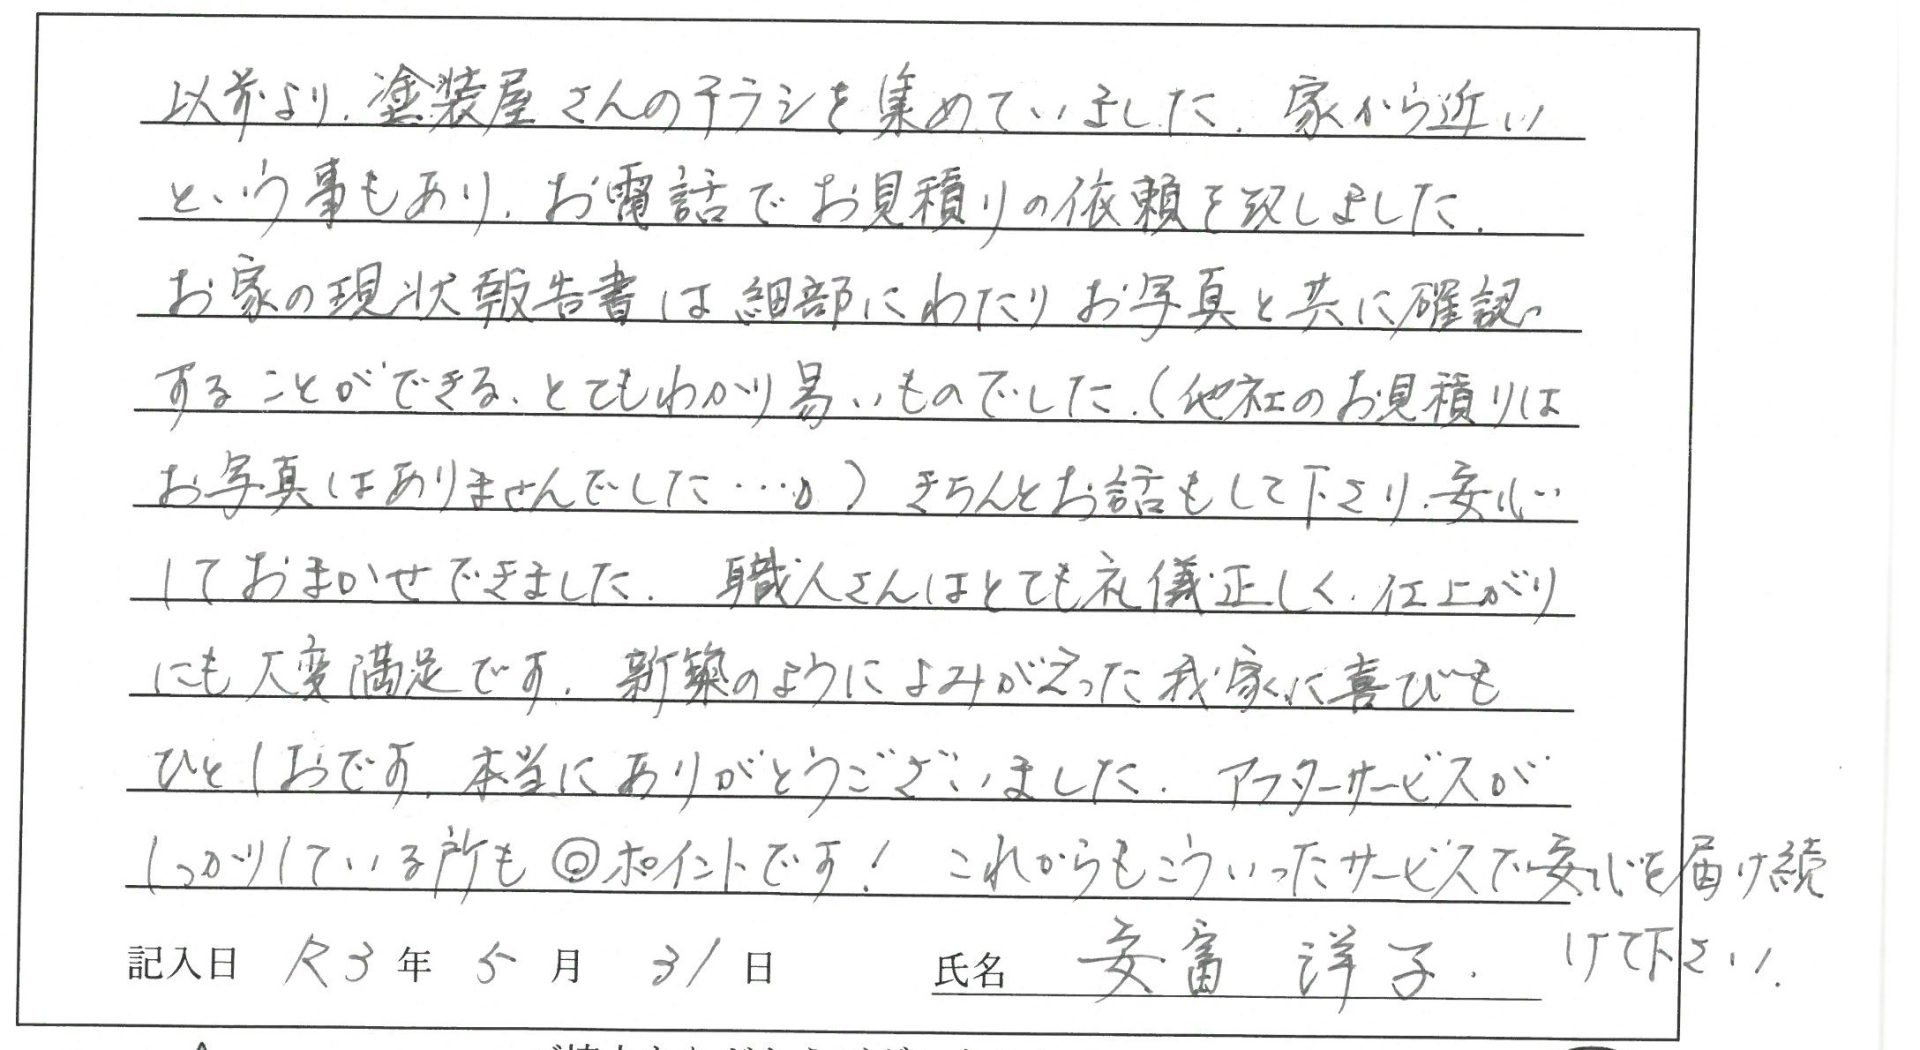 以前より、塗装屋さんのチラシを集めていました。家から近い
という事もあり、お電話でお見積りの依頼を致しました。
お家の現状報告書は細部にわたりお写真と共に確認
することができる、とてもわかり易いものでした。(他社のお見積りは
お写真はありませんでした…。) きちんとお話もして下さり、安心
しておまかせできました。職人さんはとても礼儀正しく、仕上がり
にも大変満足です。新築のようによみがえった我家に喜びも
ひとしおです。本当にありがとうございました。アフターサービスが
しっかりしている所も◎ポイントです! これからもこういったサービスで安心を届け続
けて下さい。
記入日 R3年 5月 31日 氏名 安富 洋子.